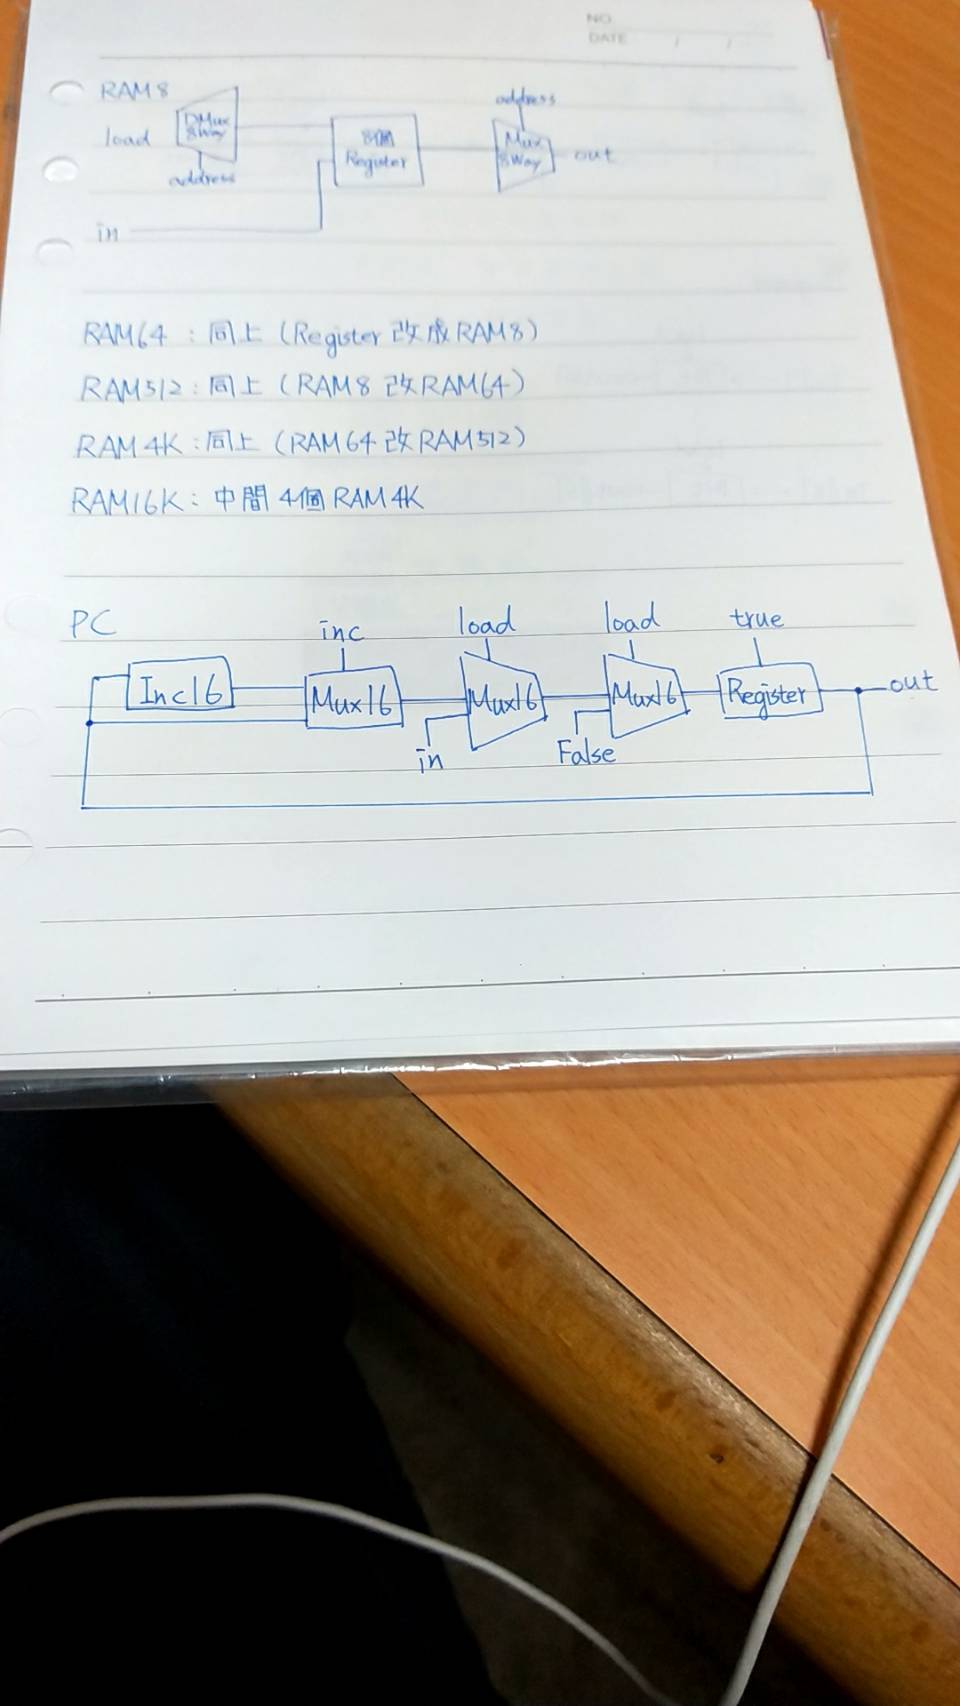 NO
DATE / /
RAM8
address
DMux
8Way
8個
Mux
8Way
load
Register
out
address
in
RAM64 : 同上 (Register 改成 RAM8)
RAM512 : 同上 (RAM8 改 RAM64)
RAM4K : 同上 (RAM64 改 RAM512)
RAM16K : 中間 4個 RAM4K
PC
inc
load
load
true
Inc16
Mux16
Mux16
Mux16
Register
out
in
False